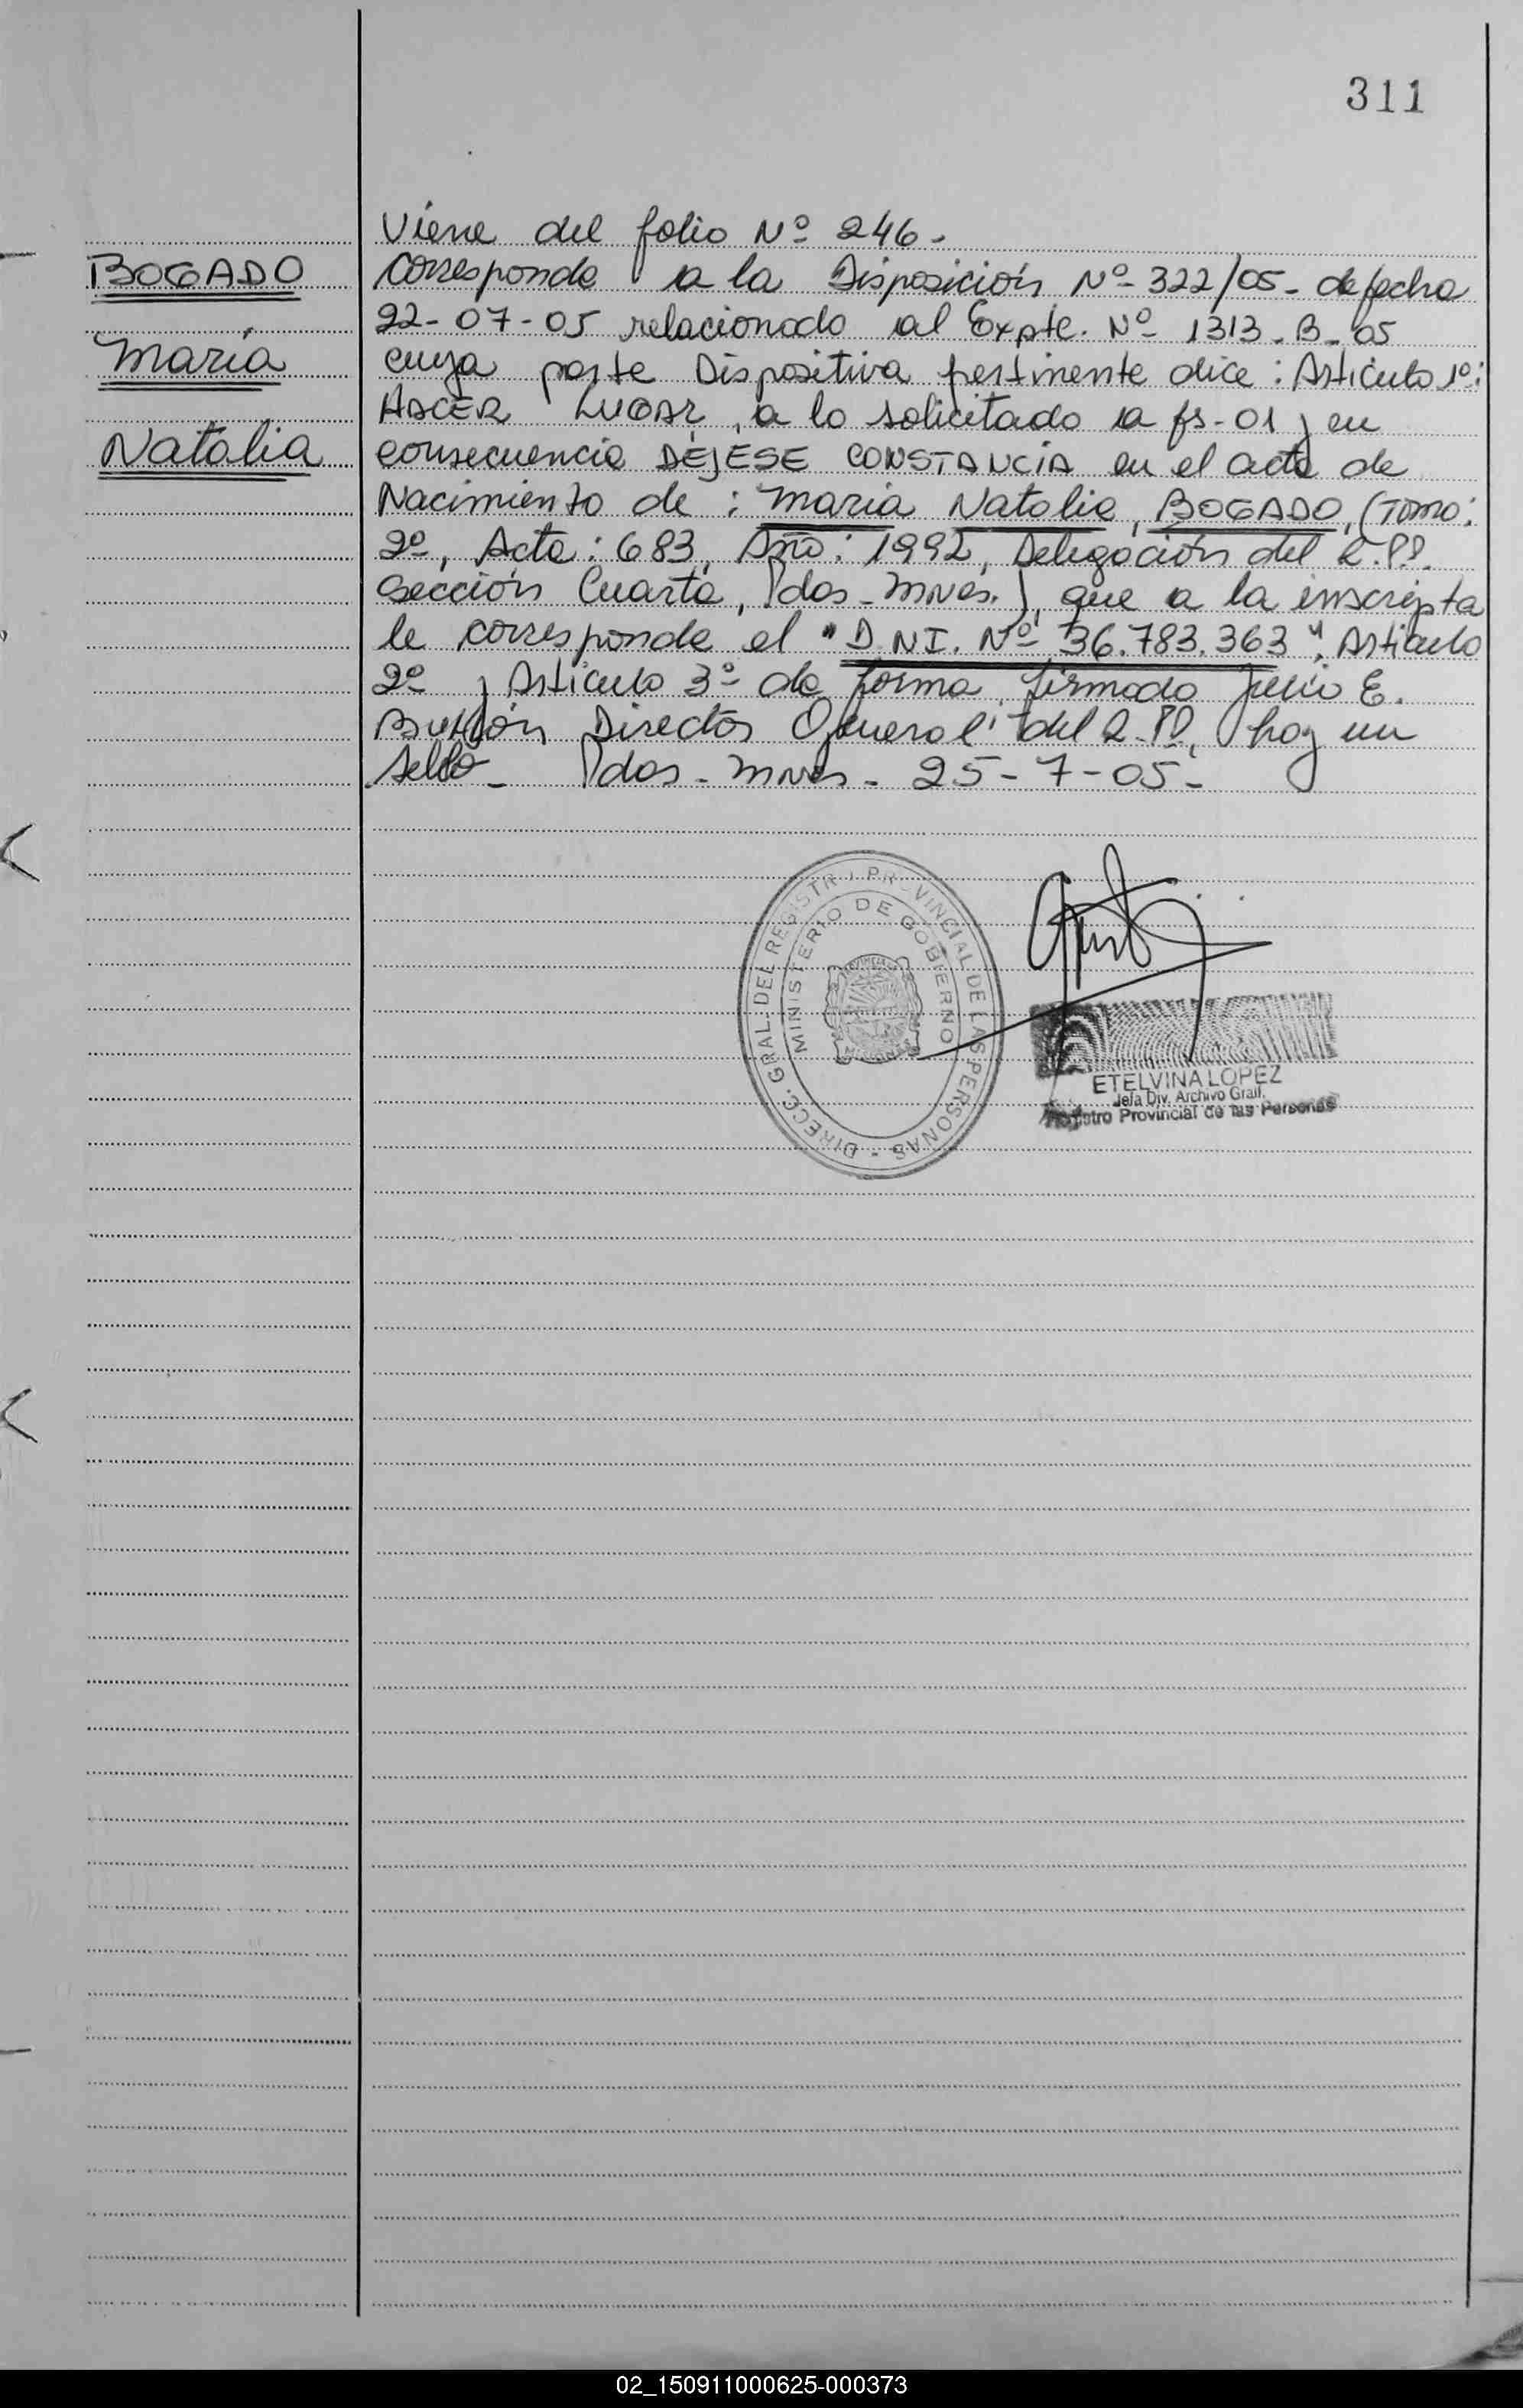 311
BOGADO
María
Natalia
Viene del folio Nº 246-
Corresponde a la Disposición Nº 322/05- de fecha
22-07-05 relacionado al Expte. Nº 1313-B-05
cuya parte Dispositiva pertinente dice: Artículo 1º:
HACER LUGAR, a lo solicitado a fs-01 y en
consecuencia DÉJESE CONSTANCIA en el acta de
Nacimiento de: María Natalia, BOGADO, (Tomo:
2º, Acta: 683, Año: 1992, Delegación del R.P.P.
Sección Cuarta, Pdas-Mnes.), que a la inscripta
le corresponde el "D.NI. Nº 36.783.363". Artículo
2º y Artículo 3º de forma, firmado Julio E.
Director General del R.P.P, hay un
sello- Pdas-Mnes- 25-7-05-
DIRECC. GRAL. DEL REGISTRO PROVINCIAL DE LAS PERSONAS -
MINISTERIO DE GOBIERNO
ETELVINA LOPEZ
Jefa Div. Archivo Gral.
Registro Provincial de las Personas
02_150911000625-000373